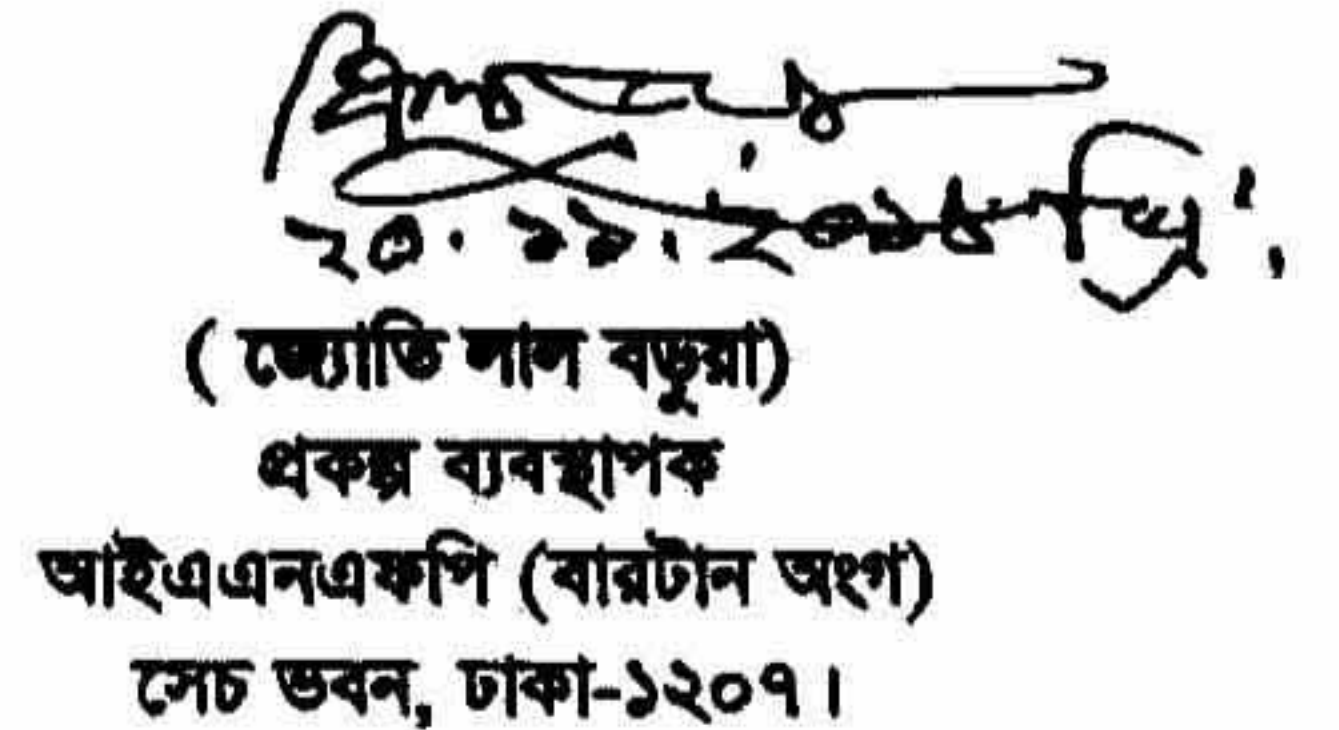 ২০.১১.২০১৪ খ্রি.
( জ্যোতি লাল বড়ুয়া)
প্রকল্প ব্যবস্থাপক
আইএএনএফপি (বারটান অংগ)
সেচ ভবন, ঢাকা-১২০৭।